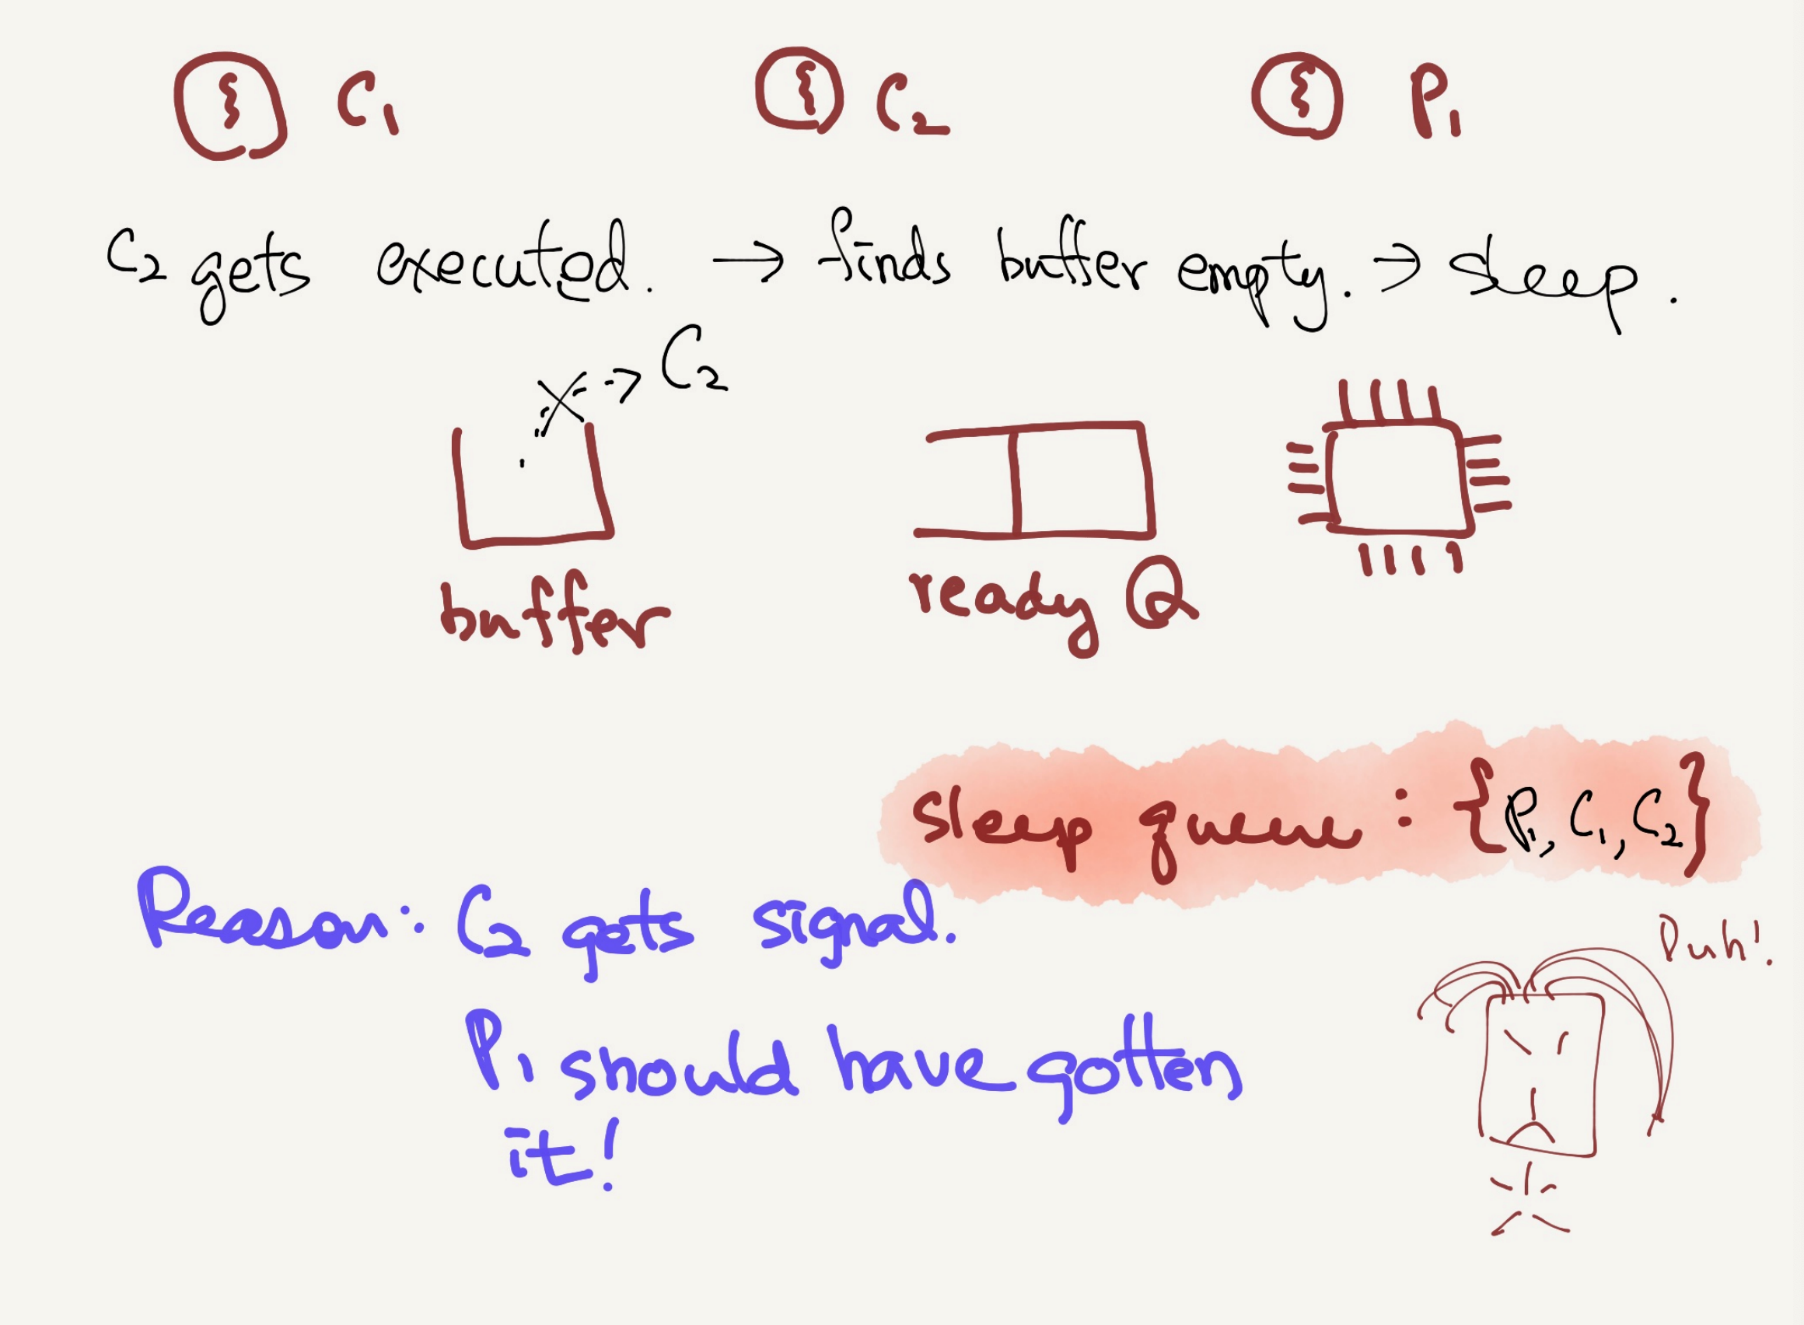 C1 C2 P1
C2 gets executed. → finds buffer empty. → sleep.
C2
buffer
ready Q
sleep queue : {P1, C1, C2}
Reason: C2 gets signal.
Duh!
P1 should have gotten
it!